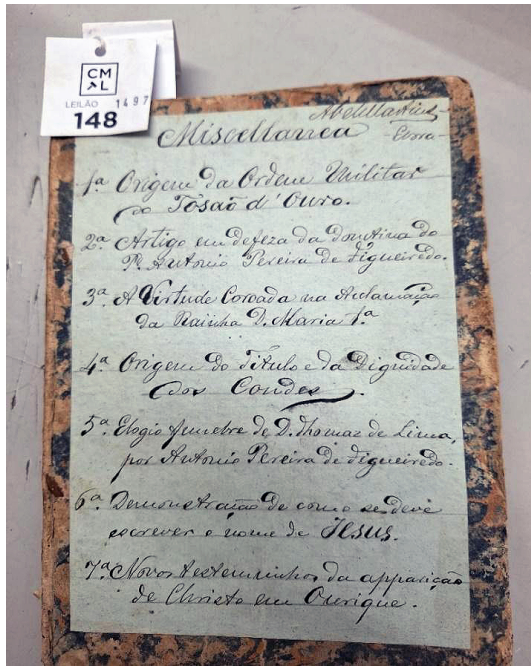 CM
AL
LEILÃO 1497
148
Abel Martins
Evora-
Miscellanea
1ª Origem da Ordem Militar
do Tosaõ d'Ouro.
2ª Artigo em defeza da Doutina do
Pe. Antonio Pereira de Figueiredo.
3ª A Virtude Coroada na Acclamação
da Rainha D. Maria 1ª
4ª Origem do Titulo e da Dignidade
dos Condes.
5ª Elogio funebre de D. Thomaz de Lima,
por Antonio Pereira de Figueiredo.
6ª Demonstração de como se deve
escrever o nome de Jesus.
7ª Novos testeminhos da apparição
de Christo em Ourique.